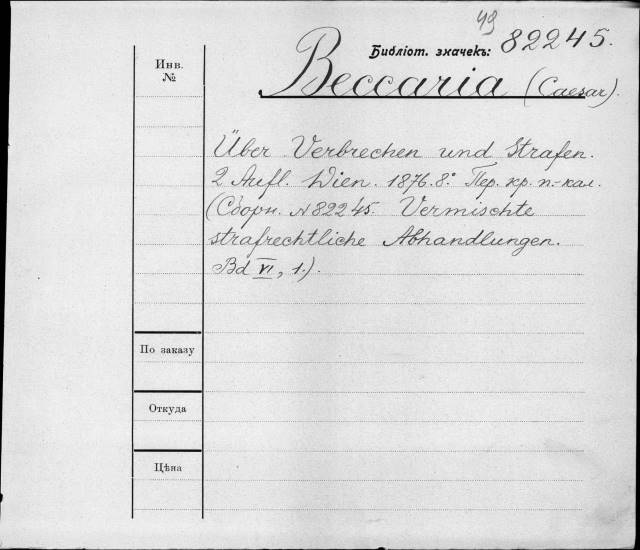 49
Библіот. значекъ: 82245.
Инв. №
Beccaria (Caesar).
Über Verbrechen und Strafen.
2 Aufl. Wien. 1876. 8.° Пер. кр. п.-кал.
(Сборн. N 82245. Vermischte
strafrechtliche Abhandlungen.
Bd VI, 1.).
По заказу
Откуда
Цѣна